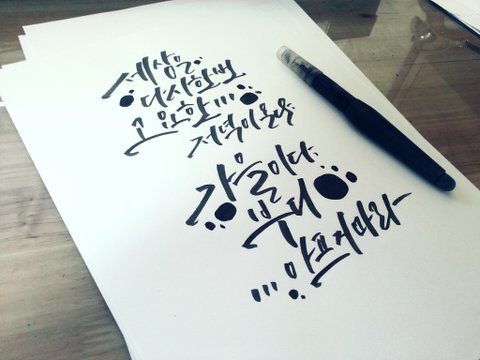 세상은
다시한번
고요한
저녁이 온다
가을이다.
부디
아프지마라